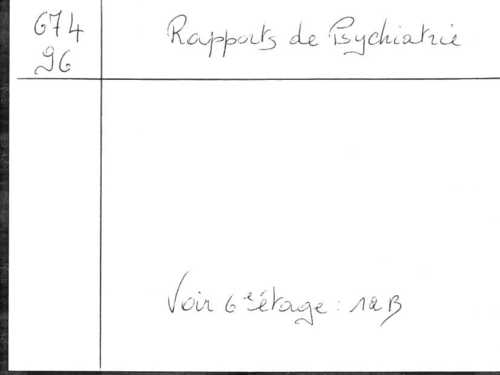 674
96
Rapports de Psychiatrie
Voir 6e étage : 1 B